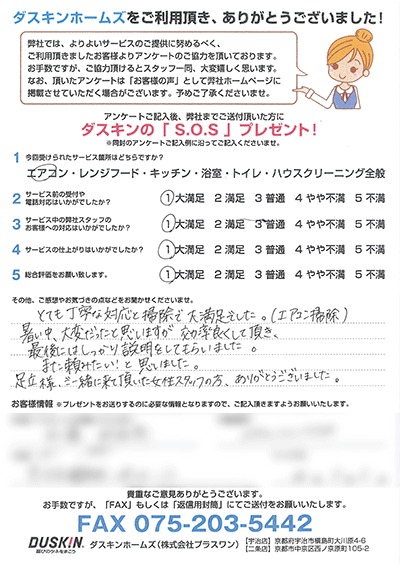 ダスキンホームズをご利用頂き、ありがとうございました!
弊社では、よりよいサービスのご提供に努めるべく、
ご利用頂きましたお客様よりアンケートのご協力を頂いております。
お手数ですが、ご協力頂けるとスタッフ一同、大変嬉しく思います。
なお、頂いたアンケートは「お客様の声」として弊社ホームページに
掲載させていただく場合がございます。予めご了承くださいませ。
アンケートご記入後、弊社までご送付頂いた方に
ダスキンの「S.O.S」プレゼント!
※同封のアンケートご記入例に沿ってご記入くださいませ。
1 今回受けられたサービス箇所はどちらですか?
エアコン・レンジフード・キッチン・浴室・トイレ・ハウスクリーニング全般
2 サービス前の受付や
電話対応はいかがでしたか?
1 大満足 2 満足 3 普通 4 やや不満 5 不満
3 サービス中の弊社スタッフの
お客様への対応はいかがでしたか?
1 大満足 2 満足 3 普通 4 やや不満 5 不満
4 サービスの仕上がりはいかがでしたか?
1 大満足 2 満足 3 普通 4 やや不満 5 不満
5 総合評価をお願い致します。
1 大満足 2 満足 3 普通 4 やや不満 5 不満
その他、ご感想やお気づきの点などをお聞かせくださいませ。
とても丁寧な対応と掃除で大満足でした。(エアコン掃除)
暑い中、大変だったと思しますが効率良くして頂き、
最後にはしっかり説明をしてもらいました。
また頼みたい!と思しました。
足立様、ご一緒に来て頂いた女性スタッフの方、ありがとうございました。
お客様情報 ※プレゼントをお送りするのに必要な情報となりますので、ご記入頂きますようお願いいたします。
貴重なご意見ありがとうございます。
お手数ですが、「FAX」もしくは「返信用封筒」にてご送付をお願いいたします。
FAX 075-203-5442
DUSKIN
喜びのタネをまこう
ダスキンホームズ(株式会社プラスワン)
【宇治店】京都府宇治市槇島町大川原4-6
【二条店】京都市中京区西ノ京原町105-2